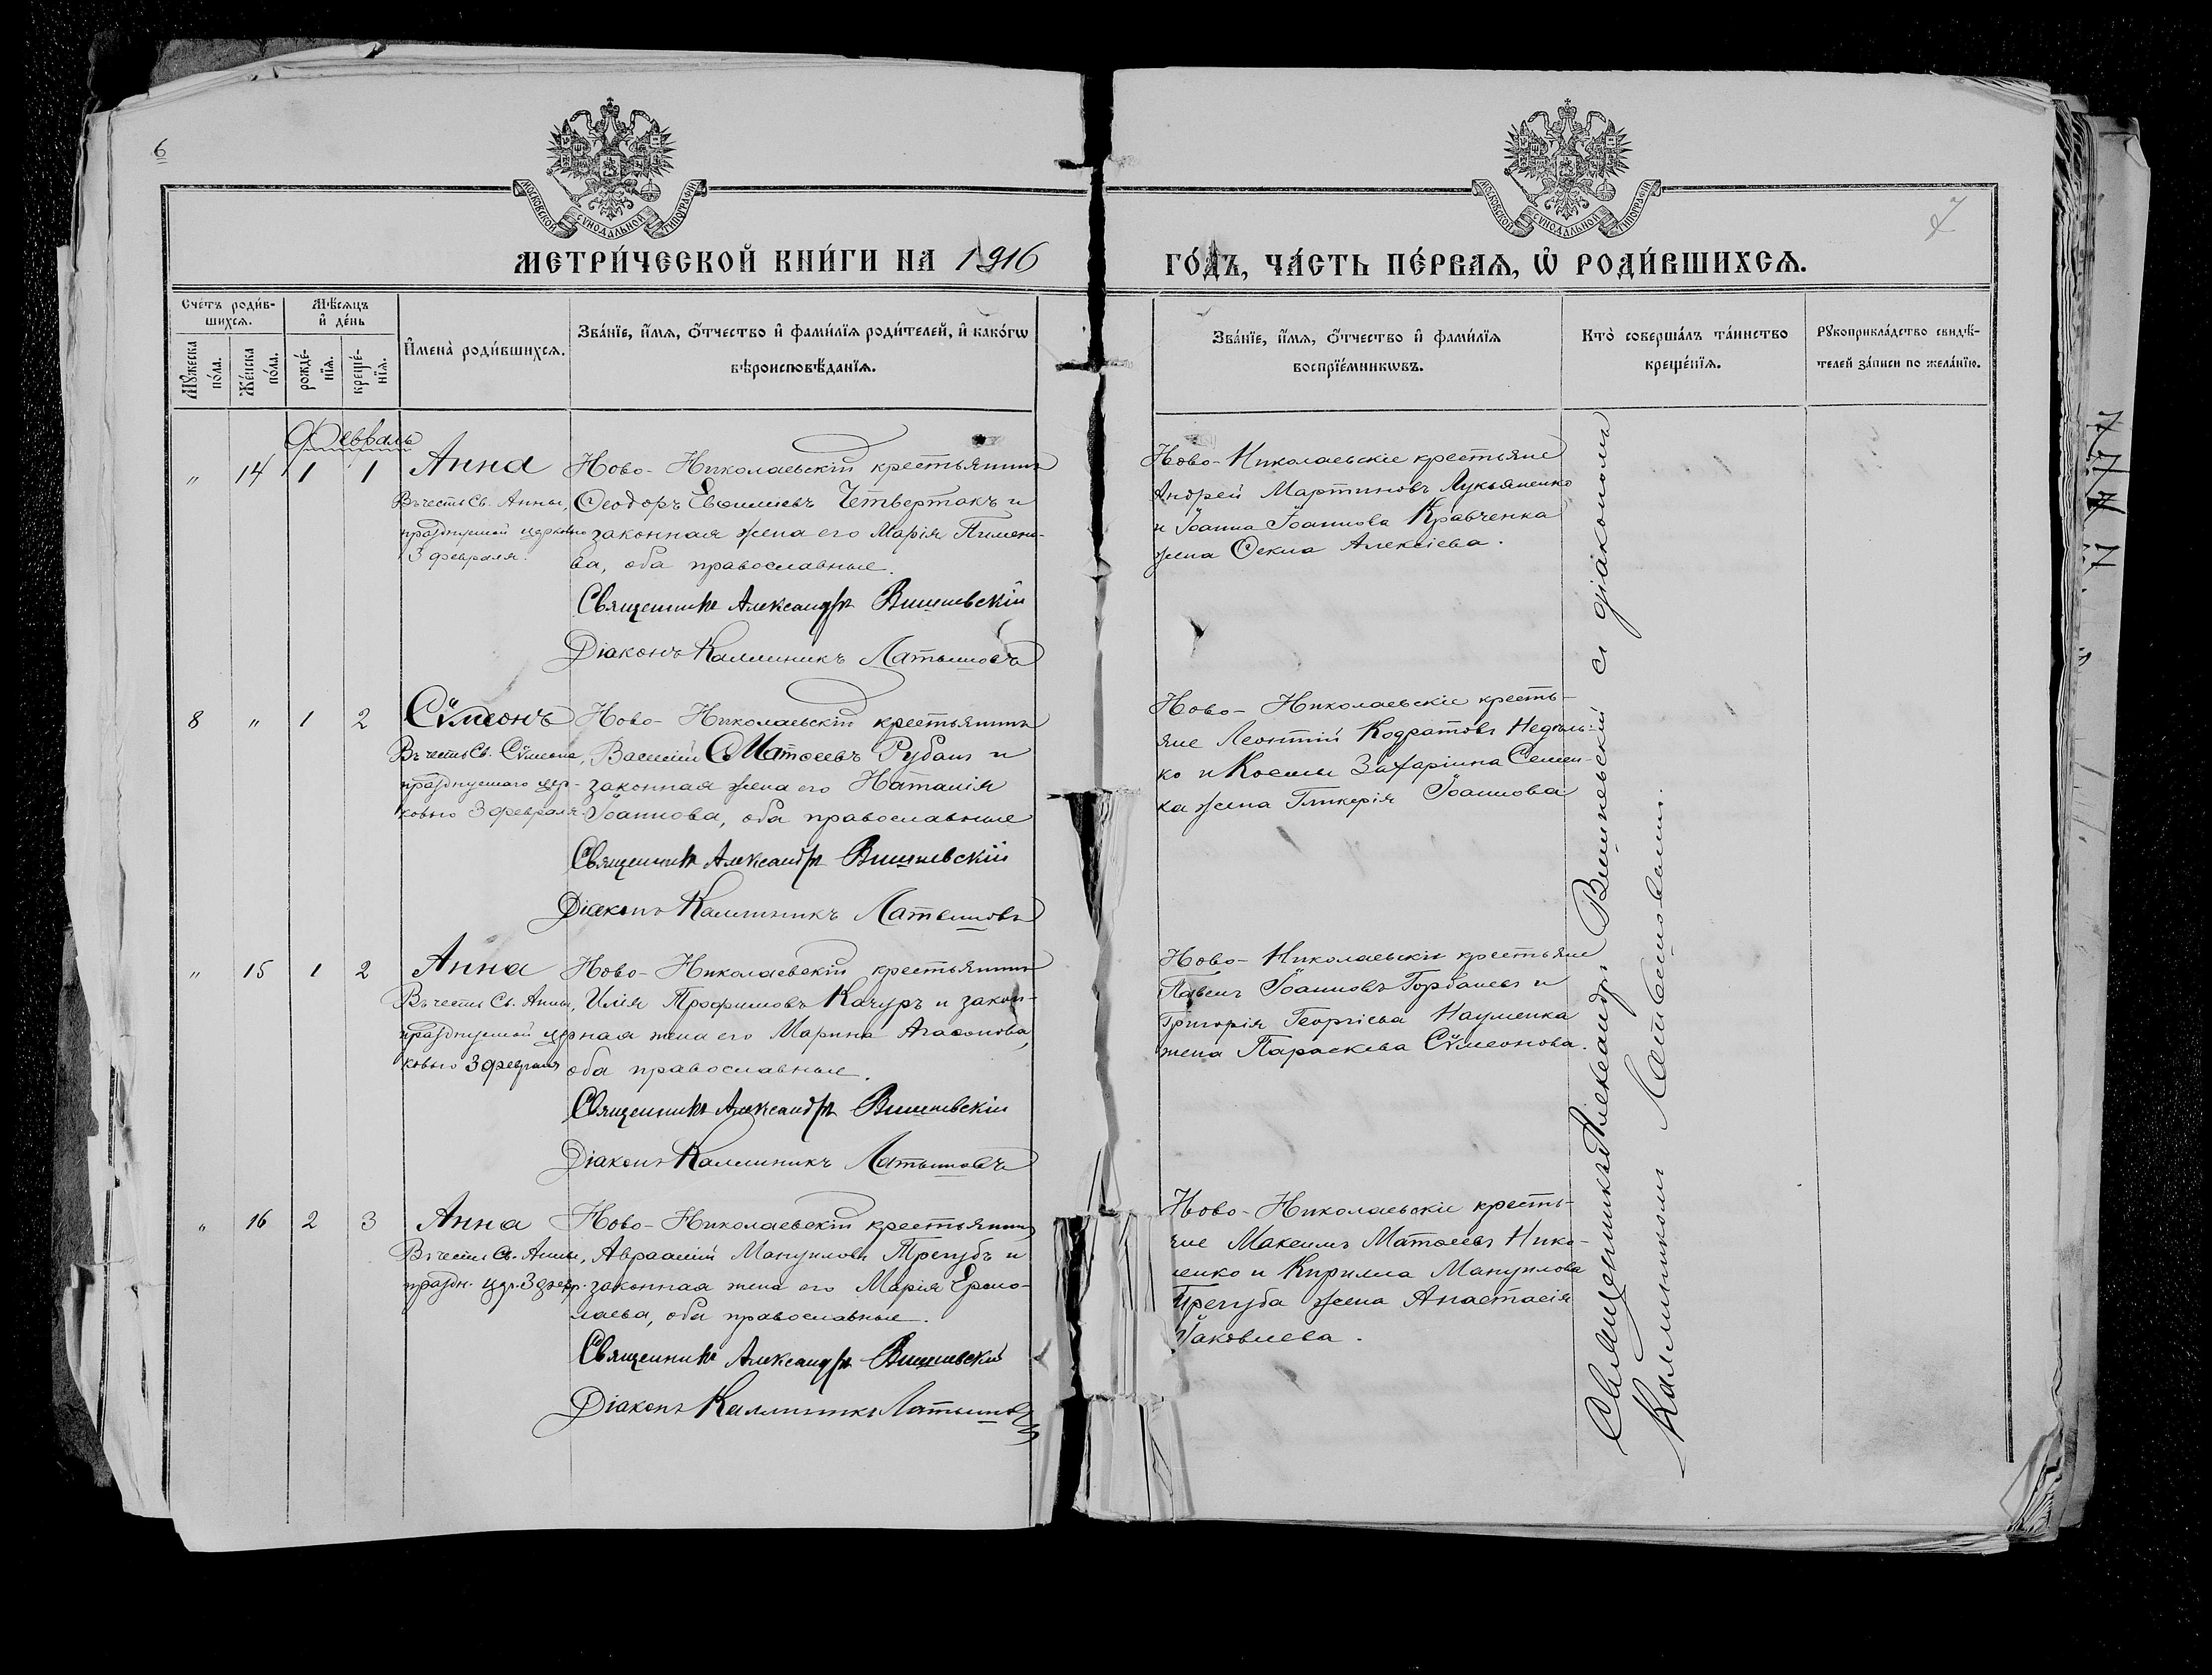 6
МОСКОВСКОЙ СѴНОДАЛЬНОЙ ТИПОГРАФІИ
МЕТРИ́ЧЕСКОЙ КНИ́ГИ НА 1916
Сче́тъ роди́в-
шихсѧ.
Мѣ́сѧцъ
и҆ де́нь
И҆мена̀ роди́вшихсѧ.
Зва́нїе, и҆́мѧ, ѻ҆́тчество и҆ фами́лїѧ роди́телей, и҆ како́гѡ
вѣроисповѣ́данїѧ.
Мꙋ́жеска
по́ла.
Же́нска
по́ла.
рожде́-
нїѧ.
креще́-
нїѧ.
Февраль
„ 14 1 1 Анна
Въ честь Св. Анны,
празднуемой церковію
3 февраля.
Ново-Николаевскій крестьянинъ
Ѳеодоръ Евѳиміевъ Четвертакъ и
законная жена его Марія Пимено-
ва, оба православные.
Священникъ Александръ Вишневскій
Діаконъ Каллиникъ Латышовъ
8 „ 1 2 Сѵмеонъ
Въ честь Св. Сѵмеона,
празднуемаго цер-
ковію 3 февраля.
Ново-Николаевскій крестьянинъ
Василій Матѳеевъ Рубанъ и
законная жена его Наталія
Іоаннова, оба православные
Священникъ Александръ Вишневскій
Діаконъ Каллиникъ Латышовъ
„ 15 1 2 Анна
Въ честь Св. Анны,
празднуемой цер-
ковію 3 февраля
Ново-Николаевскій крестьянинъ
Илія Трофимовъ Качуръ и закон-
ная жена его Марина Агаѳонова,
оба православные.
Священникъ Александръ Вишневскій
Діаконъ Каллиникъ Латышовъ
„ 16 2 3 Анна
Въ честь Св. Анны,
праздн. цер. 3 февр.
Ново-Николаевскій крестьянинъ
Авраамій Мануиловъ Трегубъ и
законная жена его Марія Ермо-
лаева, оба православные.
Священникъ Александръ Вишневскій
Діаконъ Каллиникъ Латышовъ
7
МОСКОВСКОЙ СѴНОДАЛЬНОЙ ТИПОГРАФІИ
ГО́ДЪ, ЧА́СТЬ ПЕ́РВАѦ, Ѡ҆ РОДИ́ВШИХСѦ.
Зва́нїе, и҆́мѧ, ѻ҆́тчество и҆ фами́лїѧ
воспрїе́мникѡвъ.
Кто̀ соверша́лъ та́инство
креще́нїѧ.
Рꙋкоприкла́дство свидѣ́-
телей за́писи по жела́нїю.
Ново-Николаевскіе крестьяне
Андрей Мартиновъ Лукьяненко
и Іоанна Іоаннова Кравченка
жена Ѳекла Алексіева.
Ново-Николаевскіе кресть-
яне Леонтій Кодратовъ Недѣль-
ко и Космы Захаріина Семен-
ка жена Гликерія Іоаннова
Ново-Николаевскіе крестьяне
Павелъ Іоанновъ Горбаневъ и
Григорія Георгіева Науменка
жена Параскева Сѵмеонова.
Ново-Николаевскіе кресть-
яне Максимъ Матѳеевъ Нико-
ленко и Кирилла Мануилова
Трегуба жена Анастасія
Іаковлева.
Священникъ Александръ Вишневскій съ діакономъ
Каллиникомъ Латышовымъ.